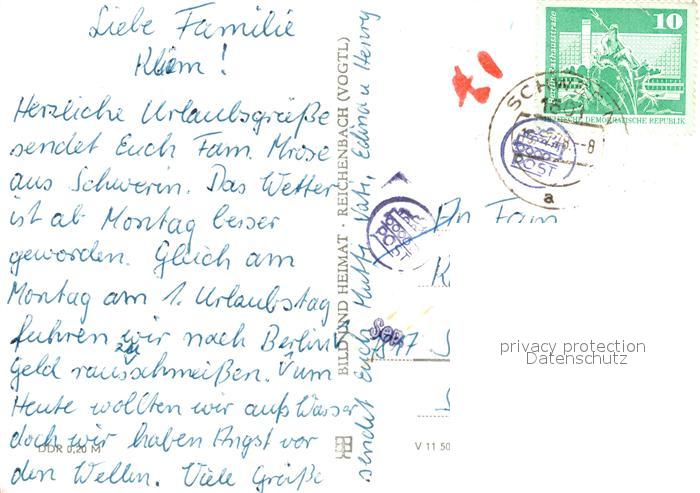 Liebe Familie
Kliem!
Herzliche Urlaubsgrüße
sendet Euch Fam. Mrose
aus Schwerin. Das Wetter
ist ab Montag besser
geworden. Gleich am
Montag am 1. Urlaubstag
fuhren wir nach Berlin um
Geld rausschmeißen. zu
Heute wollten wir aufs Wasser
doch wir haben Angst vor
den Wellen. Viele Grüße
sendet Euch Mutti, Vati, Edina u Henry
BILD UND HEIMAT · REICHENBACH (VOGTL)
DDR 0,20 M
V 11 50
An Fam
K
S
10
Rathausstraße
DEUTSCHE DEMOKRATISCHE REPUBLIK
SCHWERIN
-8
POST
a
privacy protection
Datenschutz